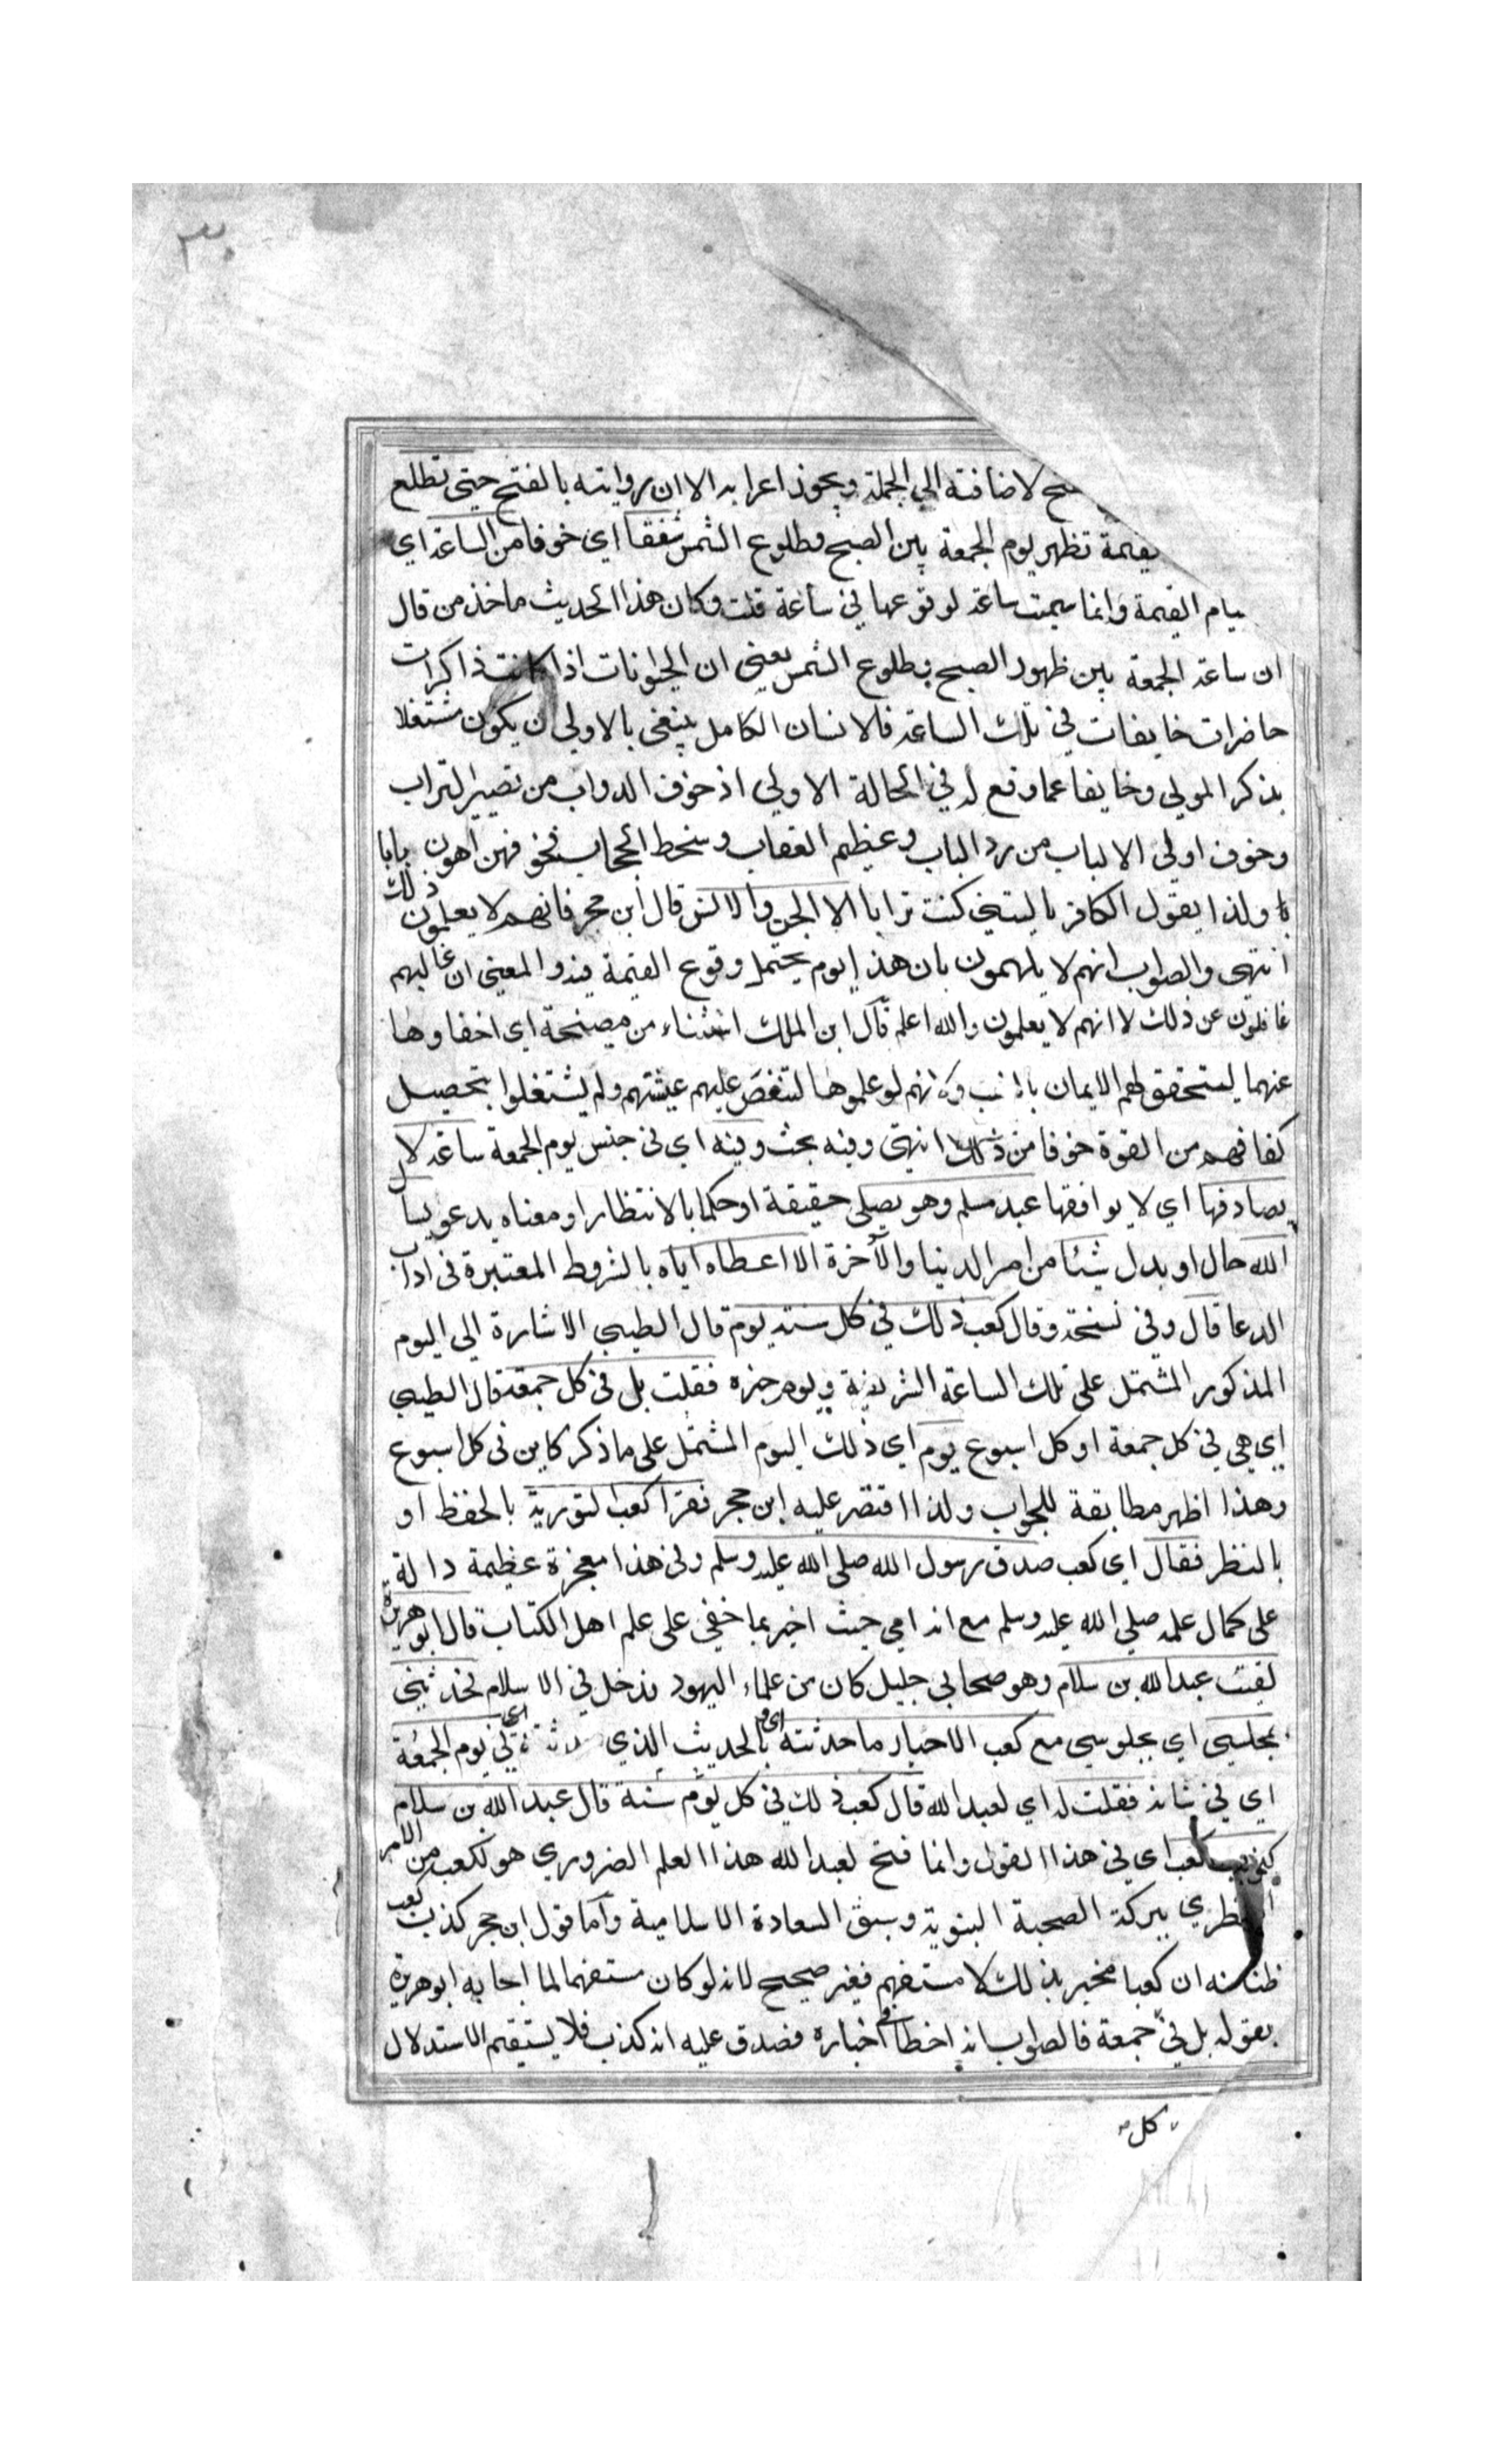 ٣٠
لاضافته الي الجملة ويجوز اعرابه الا ان روايته بالفتح حتى تطلع
تظهر يوم الجمعة بين الصبح وطلوع الشمس شفقا اي خوفا من الساعة اي
القيمة وانما سميت ساعة لوقوعها في ساعة قلت وكان هذا الحديث ماخذ من قال
ان ساعة الجمعة بين ظهور الصبح وطلوع الشمس يعني ان الحيوانات اذا كانت ذاكرات
حاضرات خايفات في تلك الساعة فالانسان الكامل ينبغي بالاولي ان يكون مشتغلا
بذكر المولي وخايفا عما وقع له في الحالة الاولي اذ خوف الدواب من تصيير التراب
وخوف اولي الالباب من رد الباب وعظيم العقاب وسخط الحجاب فهن اهون بابا
ولذا يقول الكافر ياليتني كنت ترابا الا الجن والانس قال ابن حجر فانهم لا يعلمون ذلك
انتهى والصواب انهم لا يلهمون بان هذا يوم يحتمل وقوع القيمة فيه والمعنى ان غالبهم
غافلون عن ذلك لا انهم لا يعلمون والله اعلم قال ابن الملك استثناء من مصيخة اي اخفاوها
عنهما ليتحقق لهم الايمان بالغيب وكانهم لو علموها لتنغص عليهم عيشتهم ولم يشتغلوا بتحصيل
كفافهم من القوة خوفا من ذلك انتهى وفيه بحث وفيه اي في جنس يوم الجمعة ساعة لا
يصادفها اي لا يوافقها عبد مسلم وهو يصلي حقيقة او حكما بالانتظار او معناه يدعو يسأل
الله حال او بدل شيئا من امر الدينا والآخرة الا اعطاه اياه بالشروط المعتبرة في اداب
الدعا قال وفي نسخة وقال كعب ذلك في كل سنة يوم قال الطيبي الاشارة الي اليوم
المذكور المشتمل على تلك الساعة الشريفة ويوم خبره فقلت بل في كل جمعة قال الطيبي
اي هي في كل جمعة او كل اسبوع يوم اي ذلك اليوم المشتمل على ما ذكر كاين في كل اسبوع
وهذا اظهر مطابقة للجواب ولذا اقتصر عليه ابن حجر فقرا كعب التورية بالحفظ او
بالنظر فقال اي كعب صدق رسول الله صلى الله عليه وسلم وفي هذا معجزة عظيمة دالة
على كمال علمه صلي الله عليه وسلم مع انه امي حيث اخبر بما خفي على علم اهل الكتاب قال ابو هريرة
لقيت عبد الله بن سلام وهو صحابي جليل كان من علماء اليهود فدخل في الاسلام فحدثني
بمجلسي اي بجلوسي مع كعب الاحبار وما حدثته اي بالحديث الذي في يوم الجمعة
اي في شانه فقلت له اي لعبد الله قال كعب ذلك في كل يوم سنة قال عبد الله بن سلام
كذب كعب اي في هذا القول وانما فتح لعبد الله هذا العلم الضروري هو لكعب من الامر
النظري ببركة الصحبة النبوية وسبق السعادة الاسلامية واما قول ابن حجر كذب كعب
ظنا منه ان كعبا مخبر بذلك لا مستفهم فغير صحيح لانه لو كان مستفهما لما اجابه ابو هريرة
بقوله بل في جمعة فالصواب انه اخطا في اخباره فصدق عليه انه كذب فلا يستقيم الاستدلال
كل